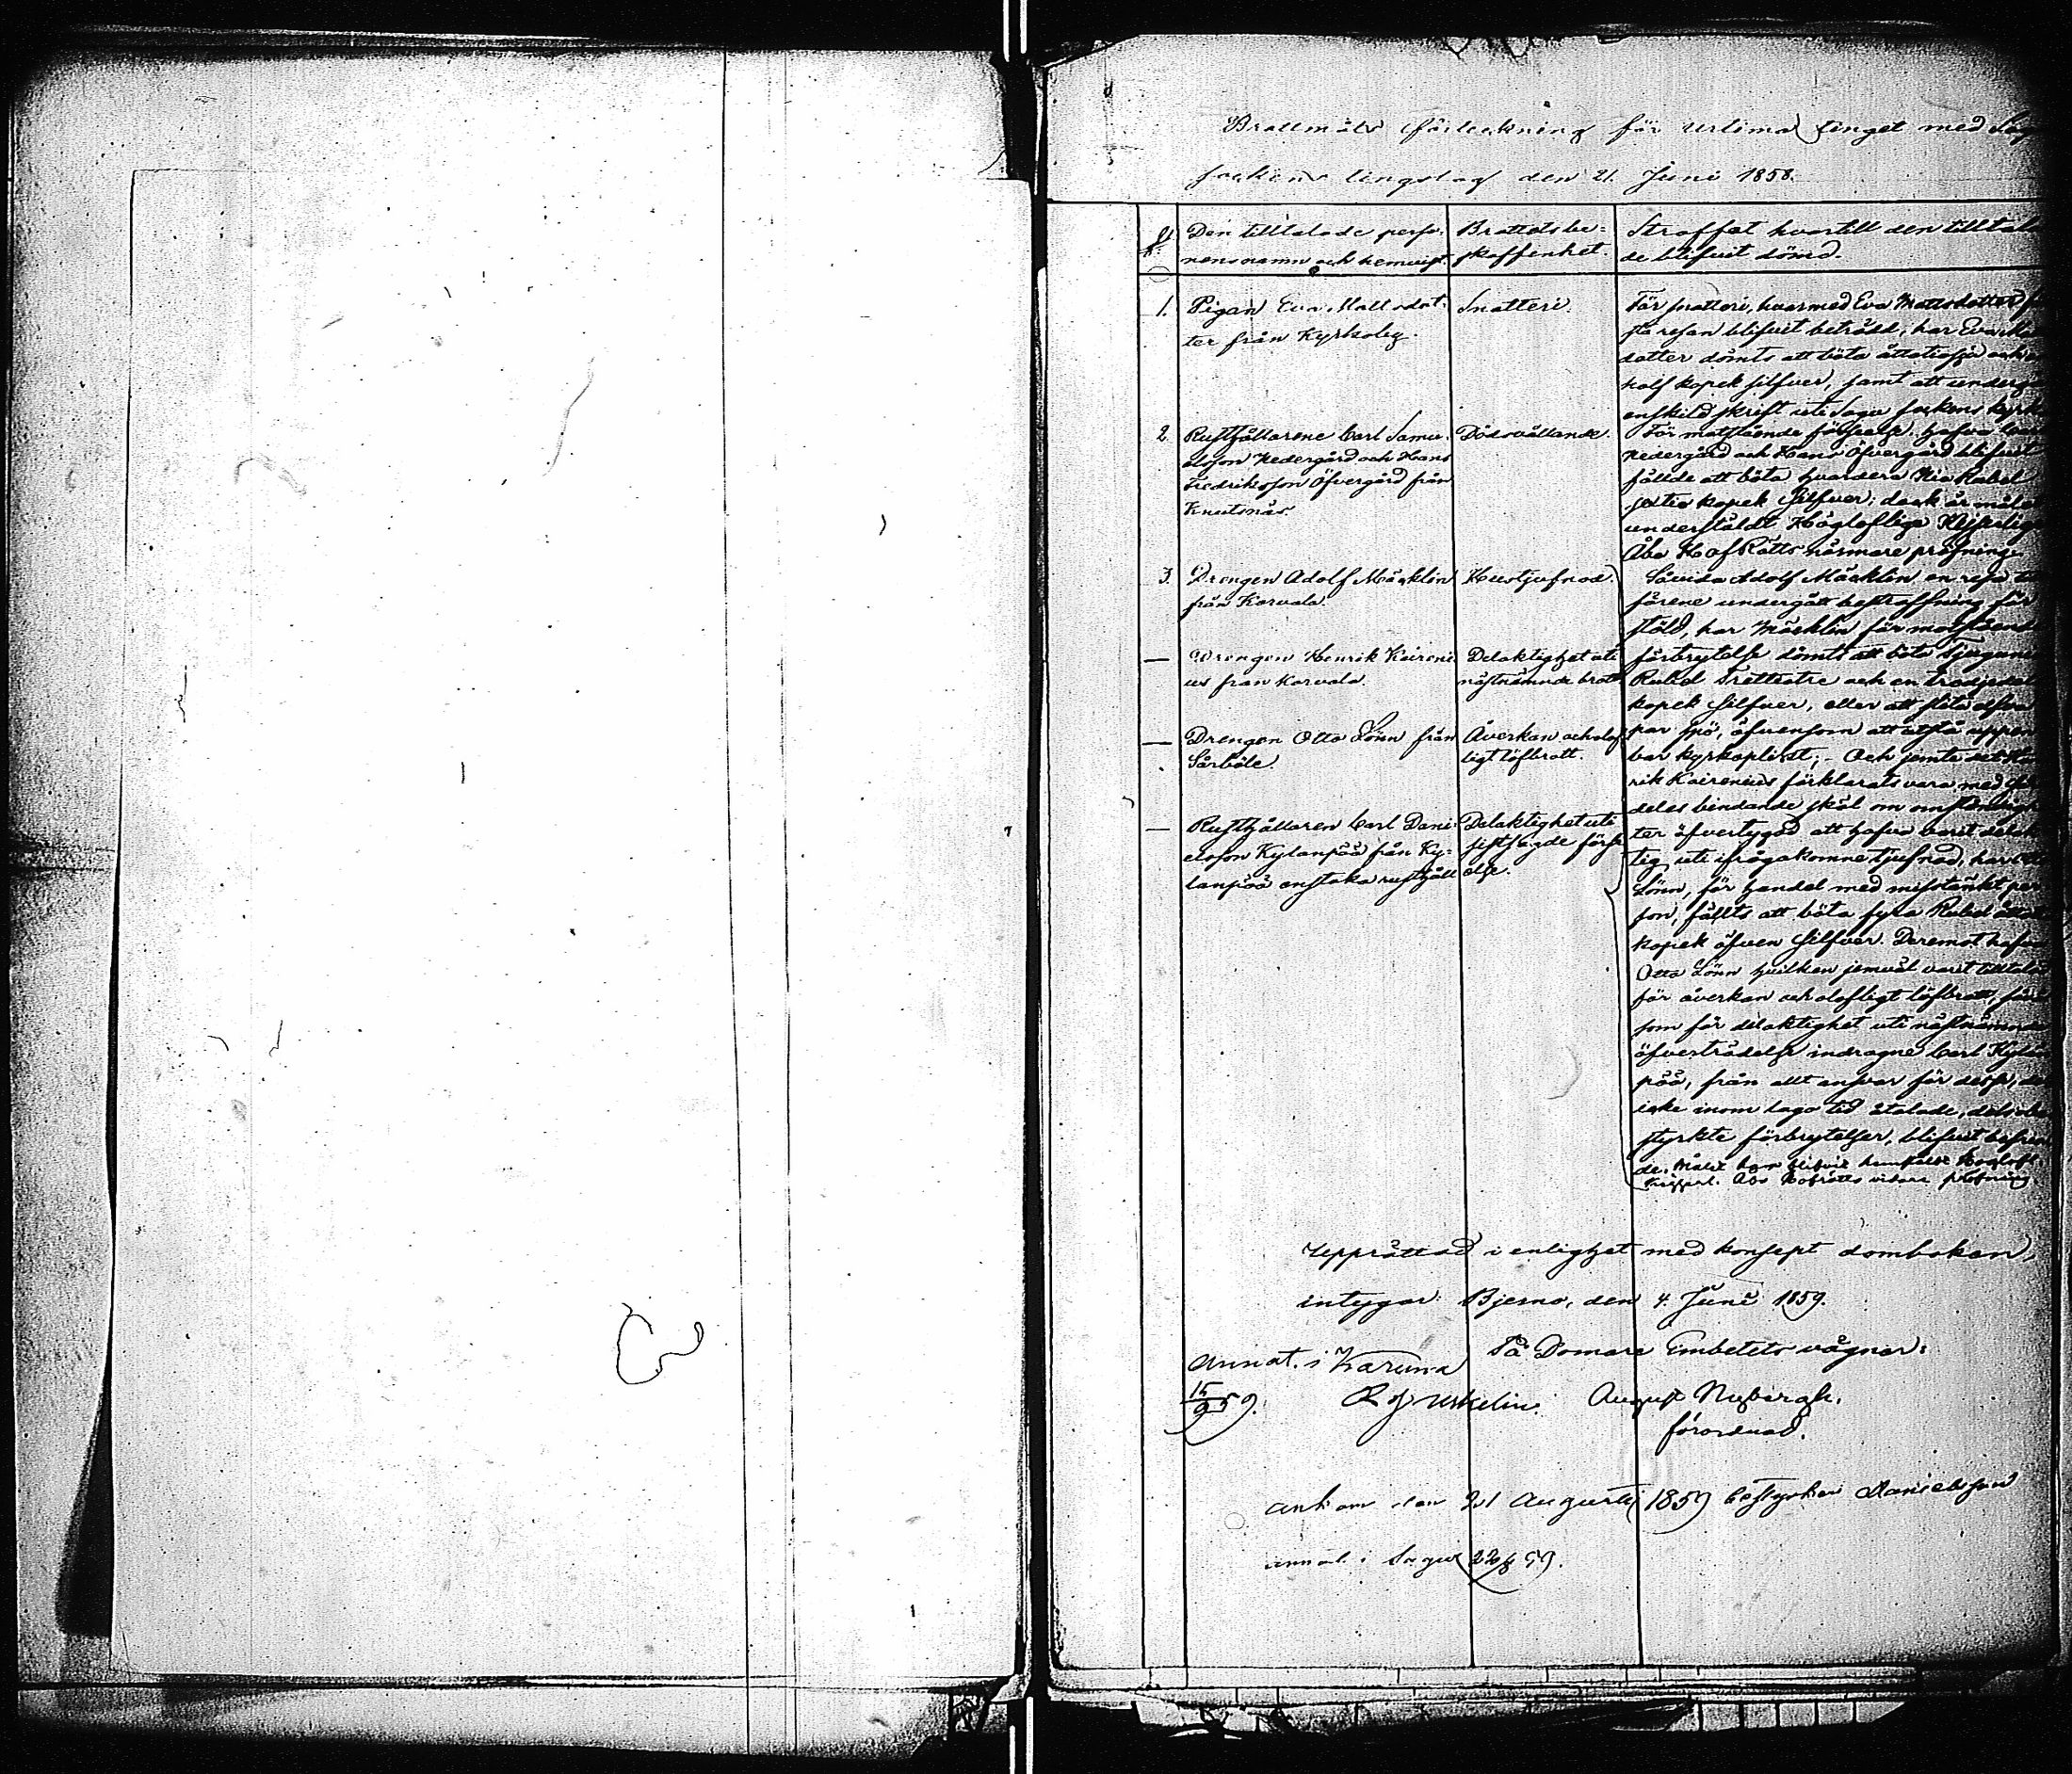 Brottmåls förteckning för urtima tinget med Sagu
sockens tingslag den 21. Juni 1858.
Den tilltalade perso-
nens namn och hemvist.
Brottets be-
skaffenhet.
Straffet hvartill den tilltala
de blifvit dömd.
1.
Pigan Eva Mattsdot-
ter från Kyrkoby.
Snatteri.
För snatteri, hvarmed Eva Mattsdotter
sta resan blifvit beträdd, har Eva Matts
dotter dömts att böta åttatiosju och en
half kopek silfver, samt att undergå
enskild skrift uti Sagu sockens kyrka
2.
Rusthållarene Carl Samu-
elsson Nedergård och Hans
Fredriksson Öfvergård från
Knutsnäs.
Dödsvållande.
För motstående förseelse hafva Carl
Nedergård och Hans Öfvergård blifvit
fällde att böta hvardera Nio Rubel
sextio kopek Silfver; dock är målet
underställdt Höglofliga Kejserliga
Åbo HofRätts närmare pröfning.
3.
Drengen Adolf Mäcklin
från Karvala.
Hustjufnad.
Såvida Adolf Mäcklin en resa till
förene undergått bestraffning för
stöld, har Mäcklin för motstående
förbrytelse dömts att böta Tjugunio
Rubel Trettiotre och en tredjedels
kopek Silfver, eller att slita
par spö, äfvensom att utstå uppen
bar kyrkoplikt; – Och jemte det Hen
rik Kairenius förklarats vara med
deles bindande skäl om omständighe
ter öfvertygad att hafva varit delak
tig uti ifrågakomne tjufnad, har Otto
Lönn, för handel med misstänkt per
son, fällts att böta fyra Rubel åttatio
kopek äfven Silfver. Deremot hafva
Otto Lönn hvilken jemväl varit tilltalad
för åverkan och olofligt löfbrott,
som för delaktighet uti nästnämnde
öfverträdelse indragne Carl Kylän
pää, från allt ansvar för dessa, dels
icke inom laga tid åtalade, dels obe
styrkte förbrytelser, blifvit befriade
de. Målet har blifvit hemstäldt Höglofl.
Kejserl. Åbo Hofrätts vidare pröfning
—
Drengen Henrik Kaireni-
us från Karvala.
Delaktighet uti
nästnämnde brott.
—
Drengen Otto Lönn från
Sårböle.
Åverkan och olof-
ligt löfbrott.
—
Rusthållaren Carl Dani-
elsson Kylänpää från Ky-
länpää enstaka rusthåll
Delaktighet uti
sistsagde förse-
else.
Upprättad i enlighet med konsept domboken,
intygar: Bjerno, den 4. Juni 1859.
På Domare Embetets vägnar:
Annot. i Karuna
15/9 59.
August Nybergh.
förordnad.
Ankom den 21 Augusti 1859 bestyrker Danielsson
annot. i Sagu 22/8 59.